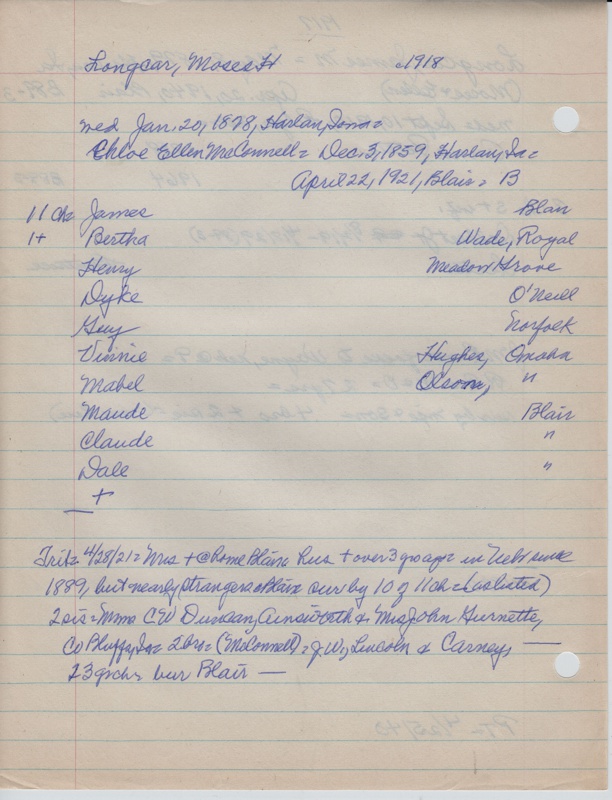 Longcar, Moses H c1918
wed Jan. 20, 1878, Harlan, Iowa =
Chloe Ellen McConnell = Dec. 3, 1859, Harlan, Ia =
April 22, 1921, Blair = B
11 Ch= James Blair
1+ Bertha Wade, Royal
Henry Meadow Grove
Dyke O'Neill
Guy Norfolk
Vinnie Hughes, Omaha
Mabel Olson, "
Maude Blair
Claude "
Dale "
+
Trib= 4/28/21 = Mrs + @ home Blair= Hus + over 3 yrs ago = in Neb since
1889, but nearly strangers @ Blair sur by 10 of 11 ch = (as listed)
2 sis = Mmes C W Duncan, Ainsworth & Mrs John Gurnette,
Co Bluffs, Ia = 2 bro = (McConnell) = J.W., Lincoln & Carney, —
23 gdch= bur Blair —